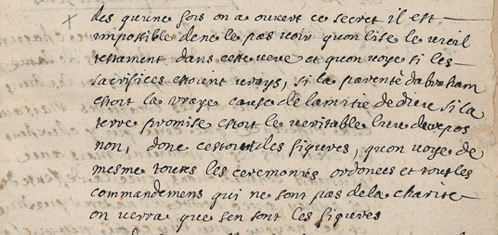 des qu'une fois on a ouvert ce secret il est
impossible de ne le pas voir quon lise le vieil
testament dans cette veue et quon voye si les
sacrifices estoient vrays, si la parenté dabraham
estoit la vraye cause de lamitié de dieu si la
terre promise estoit le veritable lieu de repos
non, donc cestoint les figures, quon voye de
mesme toutes les ceremonies ordonées et tous les
commandemens qui ne sont pas de la charité
on verra que sen sont les figures